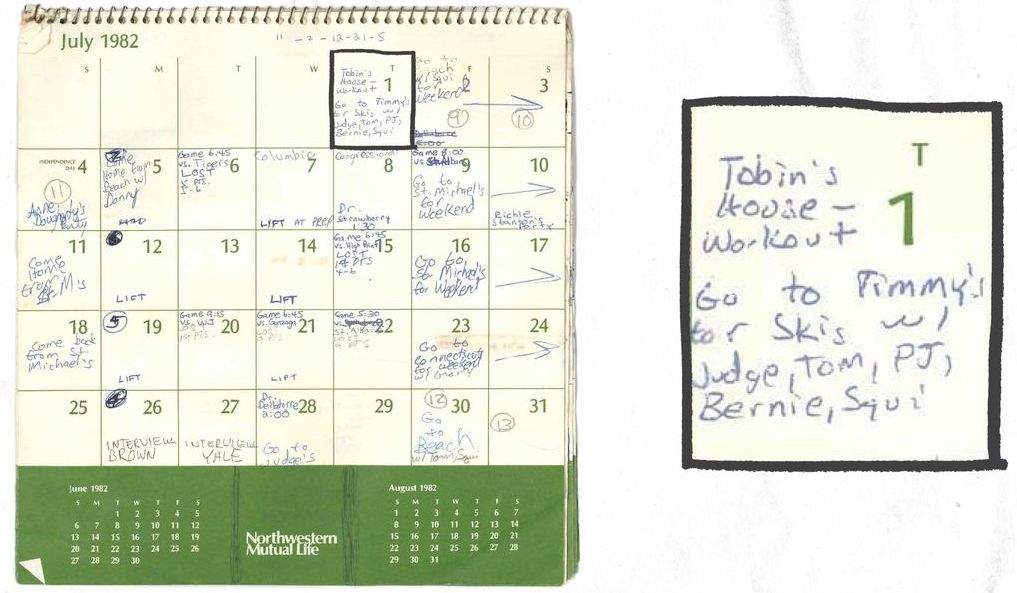 July 1982
S M T W T F S
Tobin's
House -
Workout
1
Go to Timmy's
for Skis w/
Judge, Tom, PJ,
Bernie, Squi
Beach
w/ Squi
for
Weekend
2
9
3
10
INDEPENDENCE
DAY 4
11
Anne
Dougherty's
Party
5
Come
Home from
Beach w/
Donny
Game 6:45
vs. Tigers
LOST
5-6
6
Columbia
7
LIFT AT PREP
Congressional
8
Dr.
Strawberry
1:30
Game 8:00
9
Go to
St. Michael's
for
weekend
10
Richie
Party
11
Come
Home
from
St. M's
12
LIFT
13
14
LIFT
Game 6:45
LOST
4-6
15
16
Go to
St. Michael's
for Weekend
17
18
Come back
from St.
Michael's
5
19
LIFT
Game 9:15
20
Game 6:45
vs. Gonzaga
21
LIFT
Game 5:30
22
23
Go to
Connecticut
for weekend
w/ Granny
24
25
26
INTERVIEW
BROWN
27
INTERVIEW
YALE
Dr.
2:00
28
Go to
Judge's
29
12
30
Go
to
Beach
w/ Tom, Squi
31
13
June 1982
S M T W T F S
1 2 3 4 5
6 7 8 9 10 11 12
13 14 15 16 17 18 19
20 21 22 23 24 25 26
27 28 29 30
Northwestern
Mutual Life
August 1982
S M T W T F S
1 2 3 4 5 6 7
8 9 10 11 12 13 14
15 16 17 18 19 20 21
22 23 24 25 26 27 28
29 30 31
T
1
Tobin's
House -
Workout
Go to Timmy's
for Skis w/
Judge, Tom, PJ,
Bernie, Squi